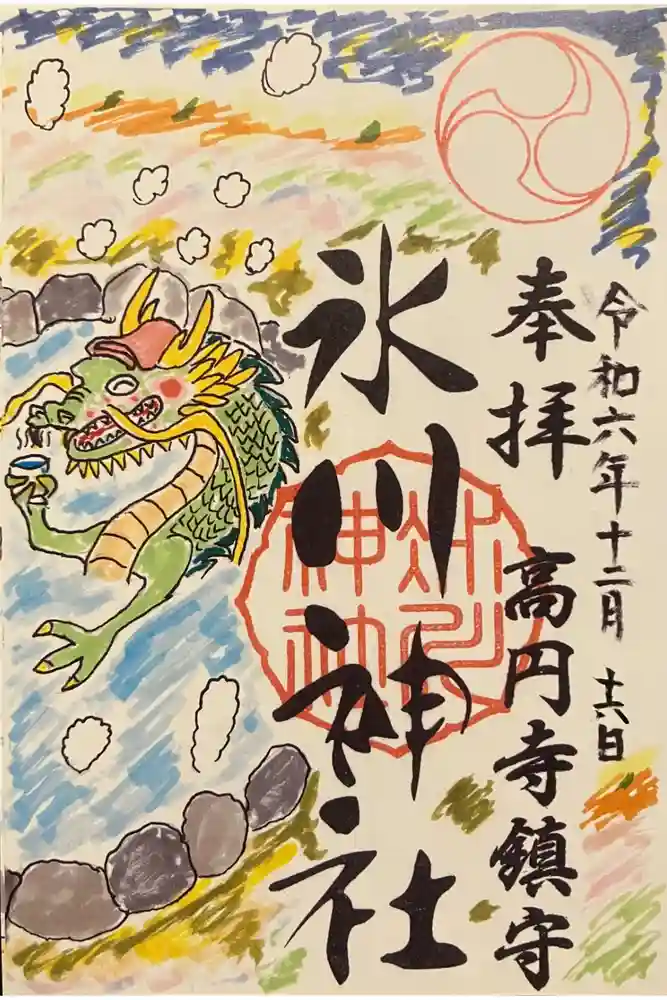 令和六年十二月十六日
奉拝 高円寺鎮守
氷川神社
氷川
神社